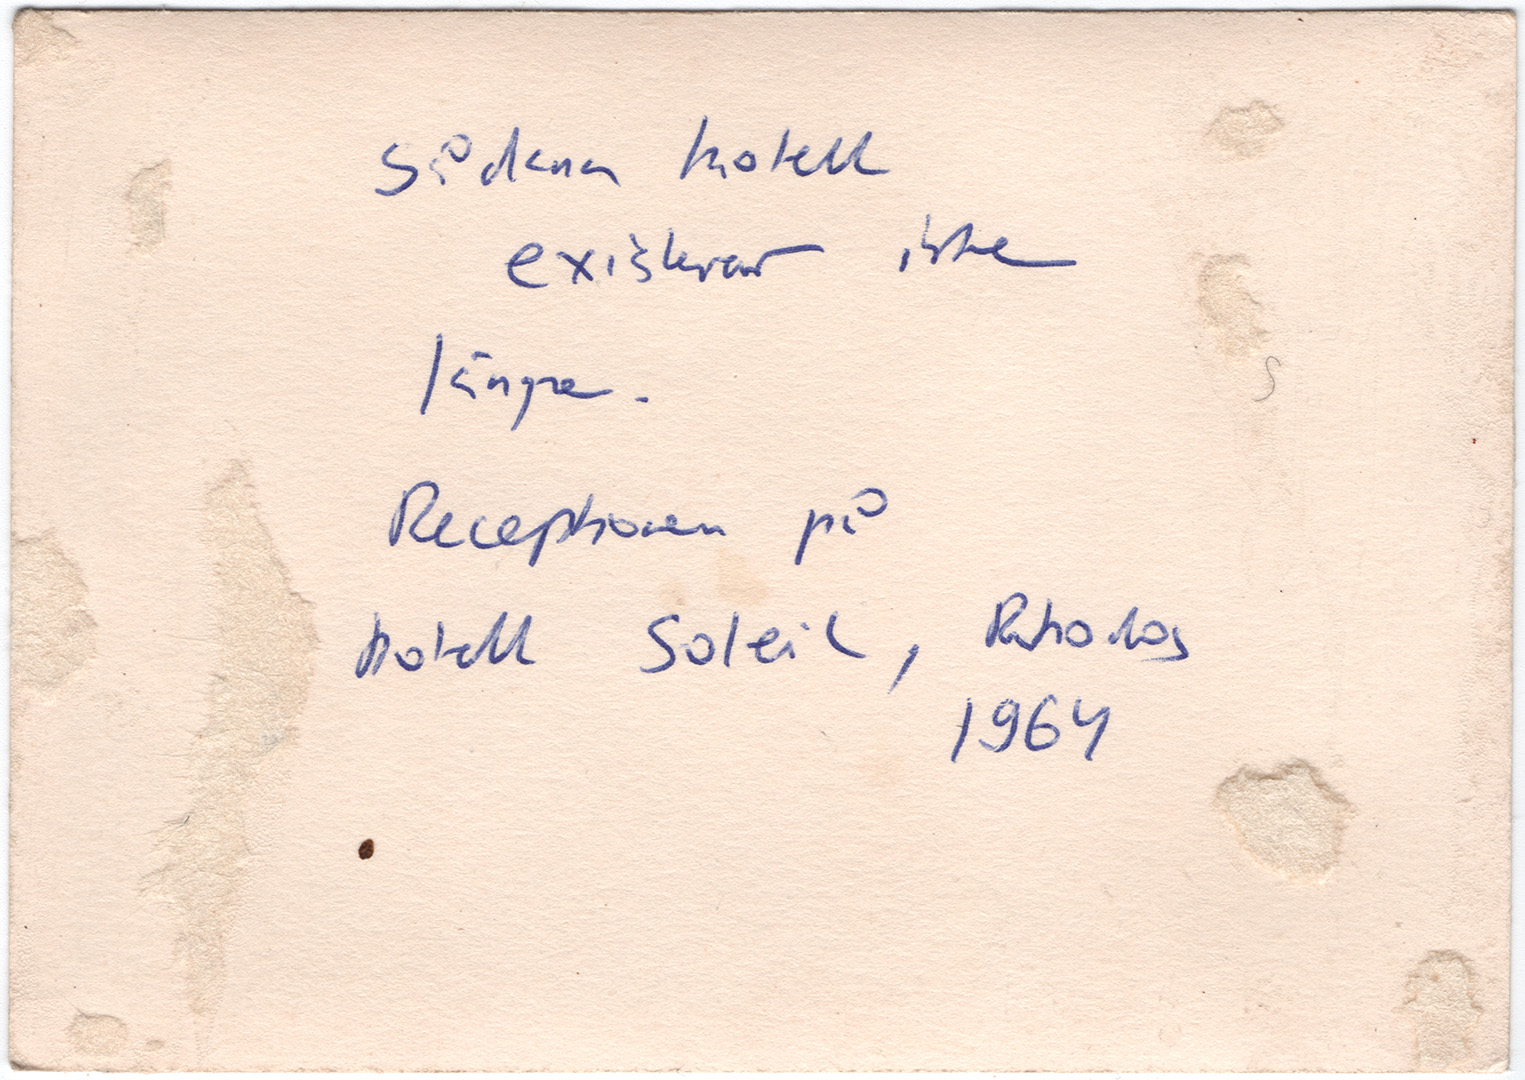 Sådana hotell
existerar inte
längre.
Receptionen på
hotell Soleil, Rhodos
1964